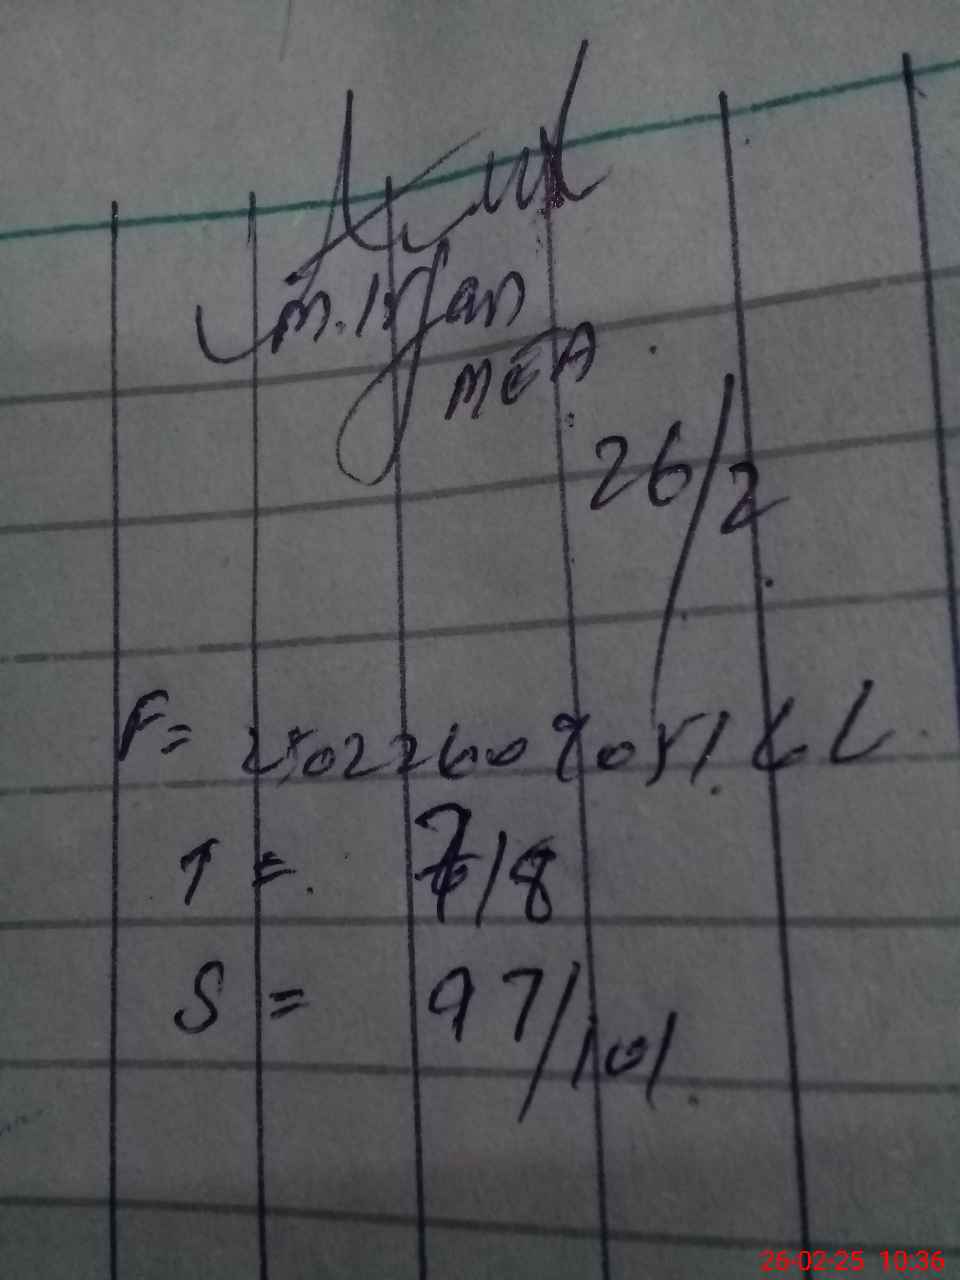 M. Irfan
MEA
26/2
F= 2502260705166
T = 7/8
S = 97/101
26-02-25 10:36